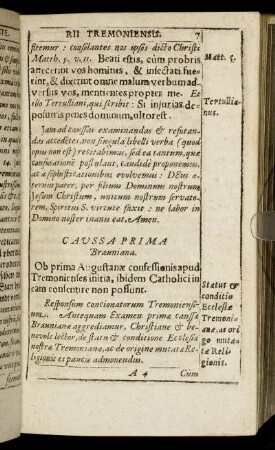 RII TREMONIENSIS. 7
stremur: consolantes nos ipsos dicto Christi
Matth. 5. v. 11. Beati estis, cùm probris
affecerint vos homines, & insectati fue-
rint, & dixerint omne malum verbum ad-
versus vos, mentientes propter me. Et
illo Tertulliani, qui scribit: Si injurias de-
posueris penes dominum, ultor est.
Iam ad caussas examinandas & refutan-
das accedetes, non singula libelli verba (quod
opus non est) recitabimus, sed ea tantum, quæ
caussationē postulant, candidè proponemus,
at a sophisticationibus evolvemus: DEus æ-
ternus pater, per filium Dominum nostrum
Jesum Christum, unicum nostrum servato-
rem, Spiritus S. virtute faxit: ne labor in
Domino noster inanis eat, Amen.
CAUSSA PRIMA
Brauniana.
Ob prima Augustanæ confessionis apud
Tremonienses initia, ibidem Catholici in
eam consentire non possunt.
Responsum concionatorum Tremoniens-
ium. Antequam Examen primæ caussæ
Braunianæ aggrediamur, Christiane & be-
nevole lector, de statu & conditione Ecclesiæ
nostræ Tremonianæ, ac de origine mutatæ Re-
ligionis es paucis admonendus.
A 4 Cùm
Matt. 5.
Tertullia-
nus.
Status &
conditio
Ecclesiæ
Tremoni-
anæ, ac ori
go mutatæ
Reli-
gionis.